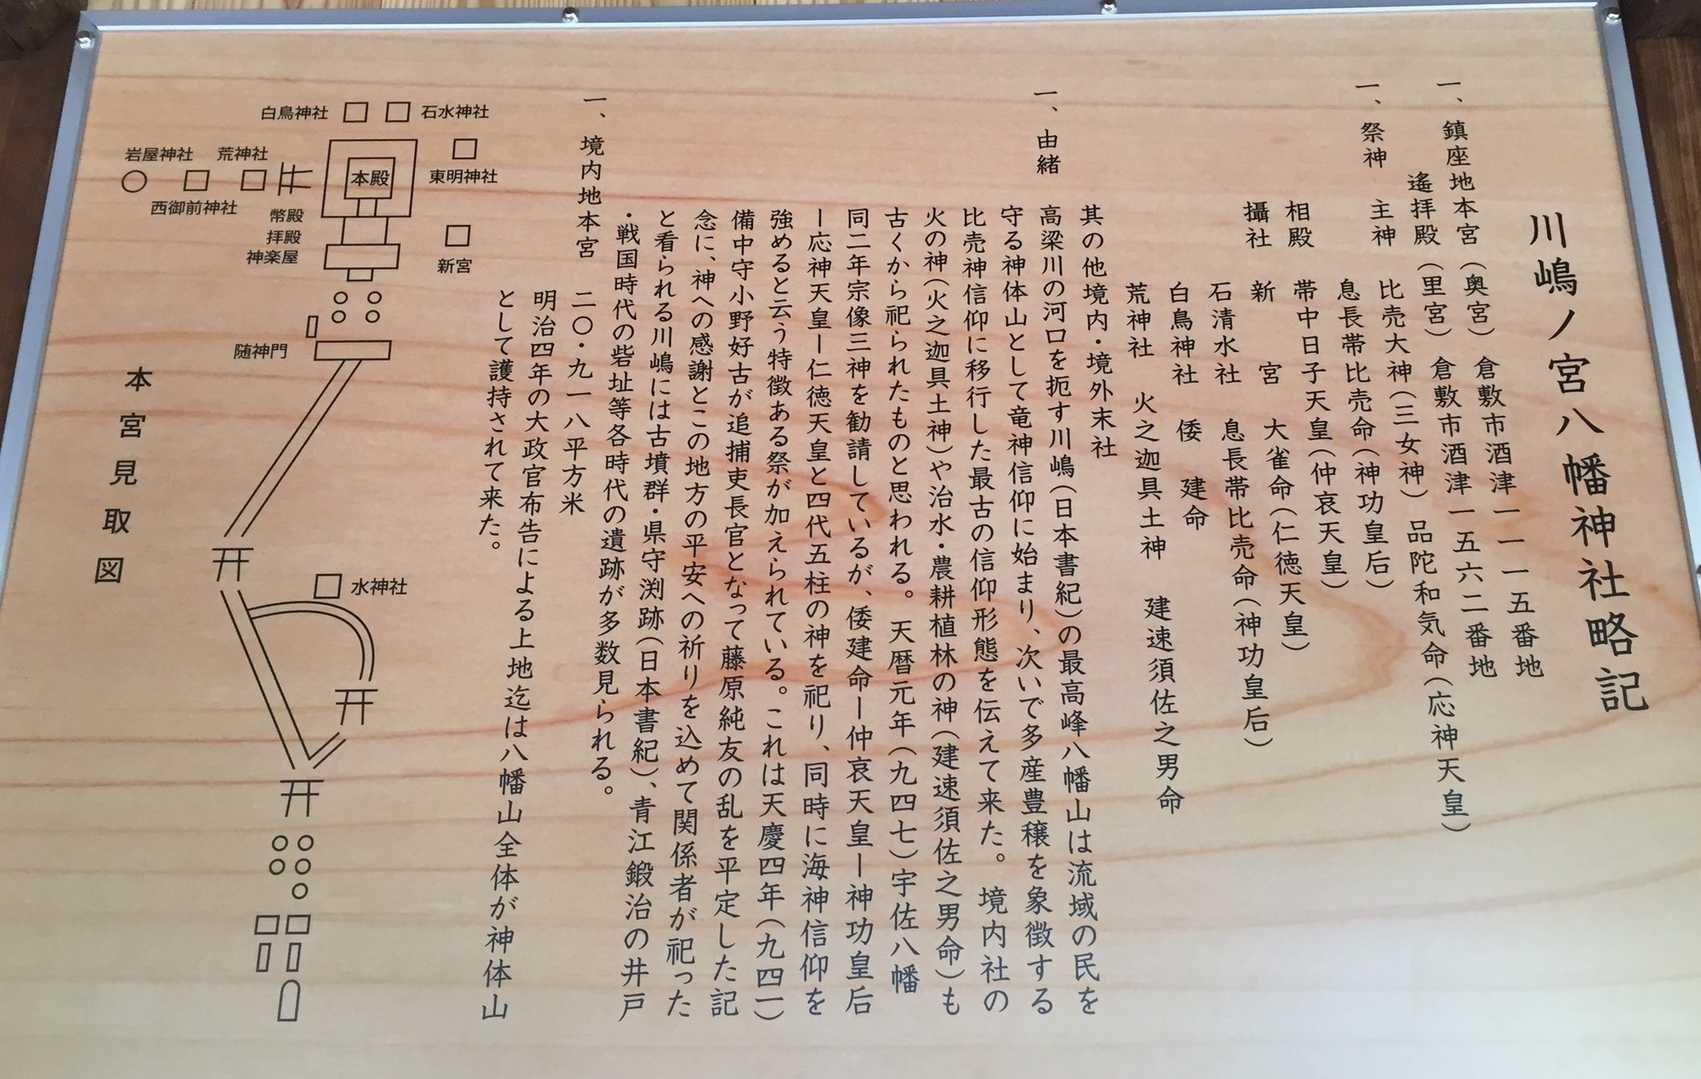 川嶋ノ宮八幡神社略記
一、鎮座地本宮（奥宮）倉敷市酒津一一一五番地
遙拝殿（里宮）倉敷市酒津一五六二番地
一、祭神 主神 比売大神（三女神）品陀和気命（応神天皇）
息長帯比売命（神功皇后）
相殿 帯中日子天皇（仲哀天皇）
攝社 新宮 大雀命（仁徳天皇）
石清水社 息長帯比売命（神功皇后）
白鳥神社 倭建命
荒神社 火之迦具土神 建速須佐之男命
其の他境内・境外末社
一、由緒 高梁川の河口を扼す川嶋（日本書紀）の最高峰八幡山は流域の民を
守る神体山として竜神信仰に始まり、次いで多産豊穣を象徴する
比売神信仰に移行した最古の信仰形態を伝えて来た。境内社の
火の神（火之迦具土神）や治水・農耕植林の神（建速須佐之男命）も
古くから祀られたものと思われる。天暦元年（九四七）宇佐八幡
同二年宗像三神を勧請しているが、倭建命ー仲哀天皇ー神功皇后
ー応神天皇ー仁徳天皇と四代五柱の神を祀り、同時に海神信仰を
強めると云う特徴ある祭が加えられている。これは天慶四年（九四一）
備中守小野好古が追捕吏長官となって藤原純友の乱を平定した記
念に、神への感謝とこの地方の平安への祈りを込めて関係者が祀った
と看られる川嶋には古墳群・県守渕跡（日本書紀）、青江鍛治の井戸
・戦国時代の砦址等各時代の遺跡が多数見られる。
一、境内地本宮 二〇・九一八平方米
明治四年の大政官布告による上地迄は八幡山全体が神体山
として護持されて来た。
白鳥神社
石水神社
岩屋神社
荒神社
本殿
東明神社
西御前神社
幣殿
拝殿
神楽屋
新宮
随神門
水神社
本宮見取図